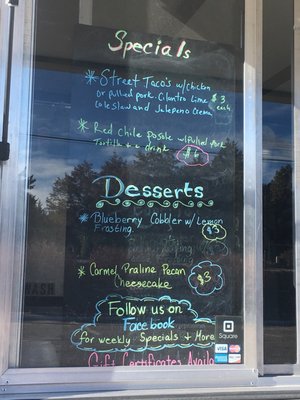 Specials
* Street Taco's w/chicken
or pulled pork. Cilantro Lime $3
Coleslaw and Jalapeno Crema each
* Red Chile posole w/Pulled Pork
Tortilla + a drink $6
Desserts
* Blueberry Cobbler w/ Lemon
Frasting. $3
* Carmel Praline Pecan
Cheesecake $3
Follow us on
Facebook
for weekly Specials & More
Gift Certificates Availa
Square
VISA